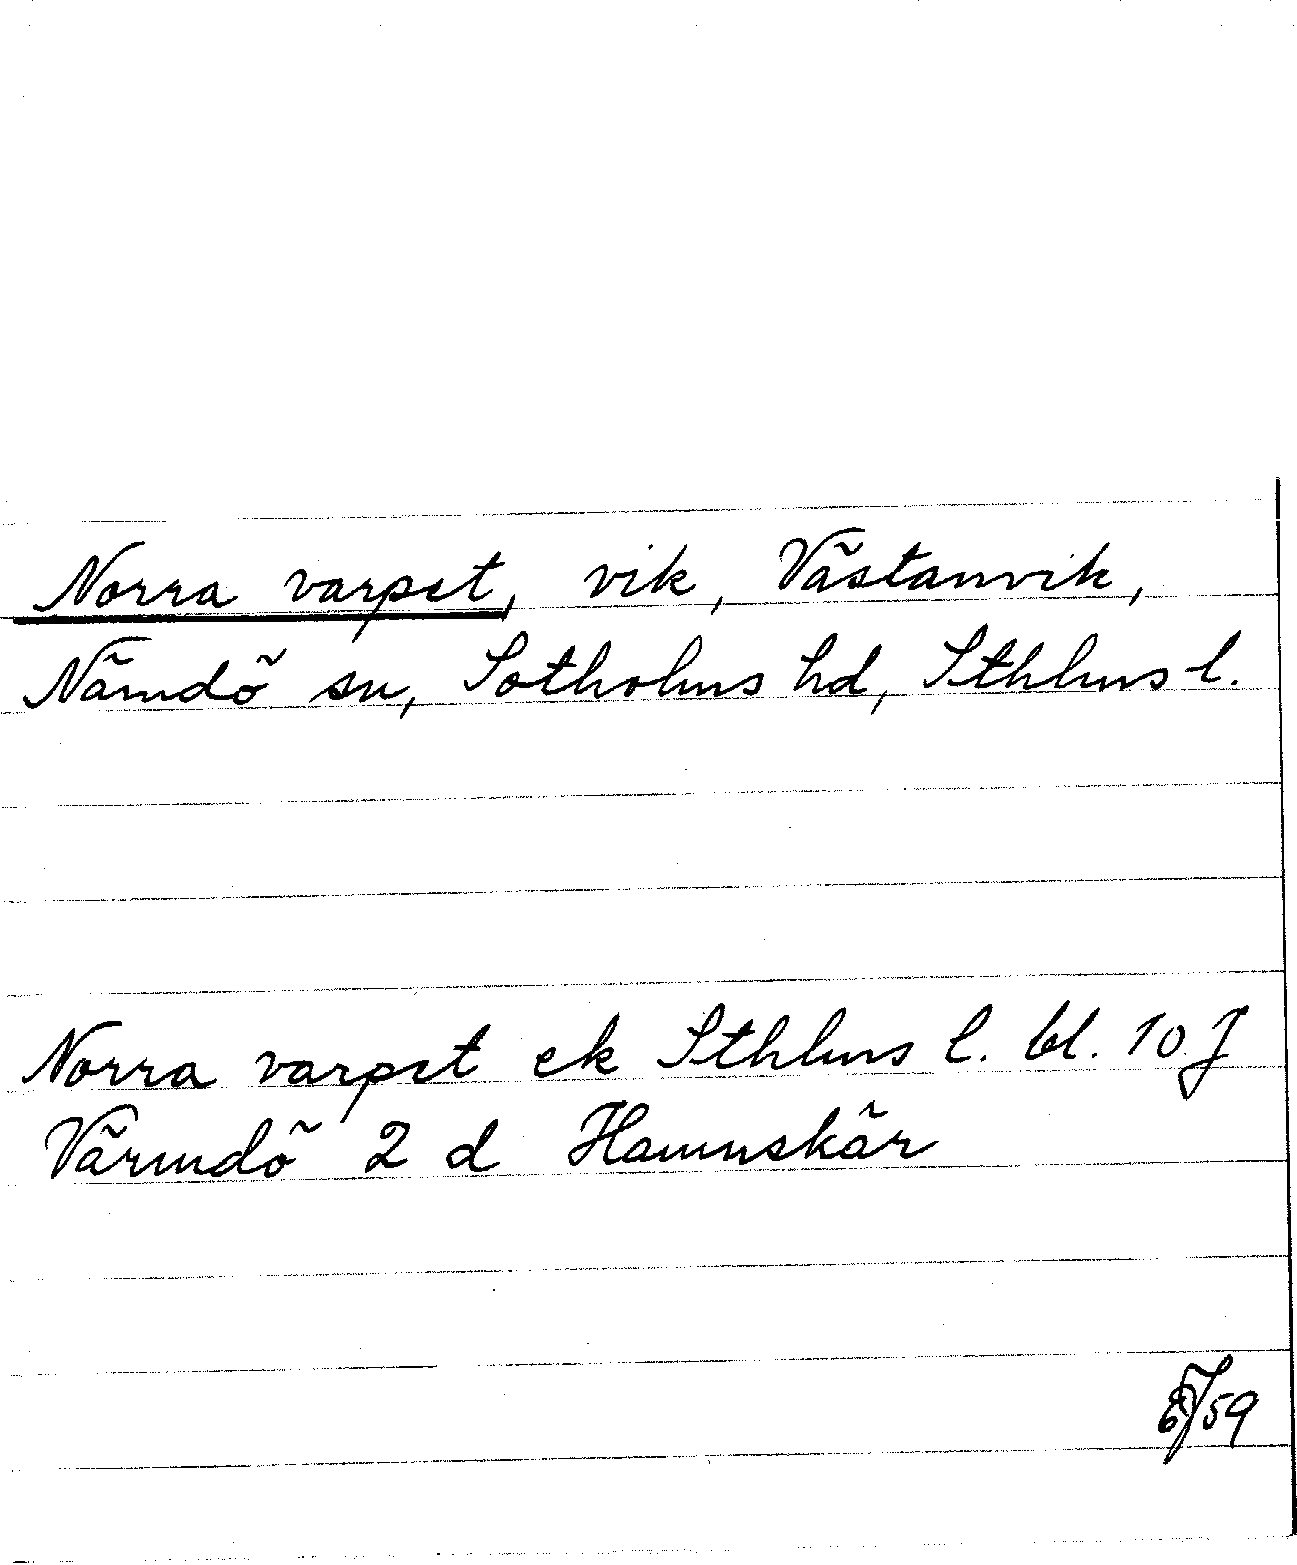 Norra varpet, vik, Västanvik,
Nämdö sn, Sotholms hd, Sthlms l.
Norra varpet ek Sthlms l. bl. 10 J
Värmdö 2 d Hamnskär
59